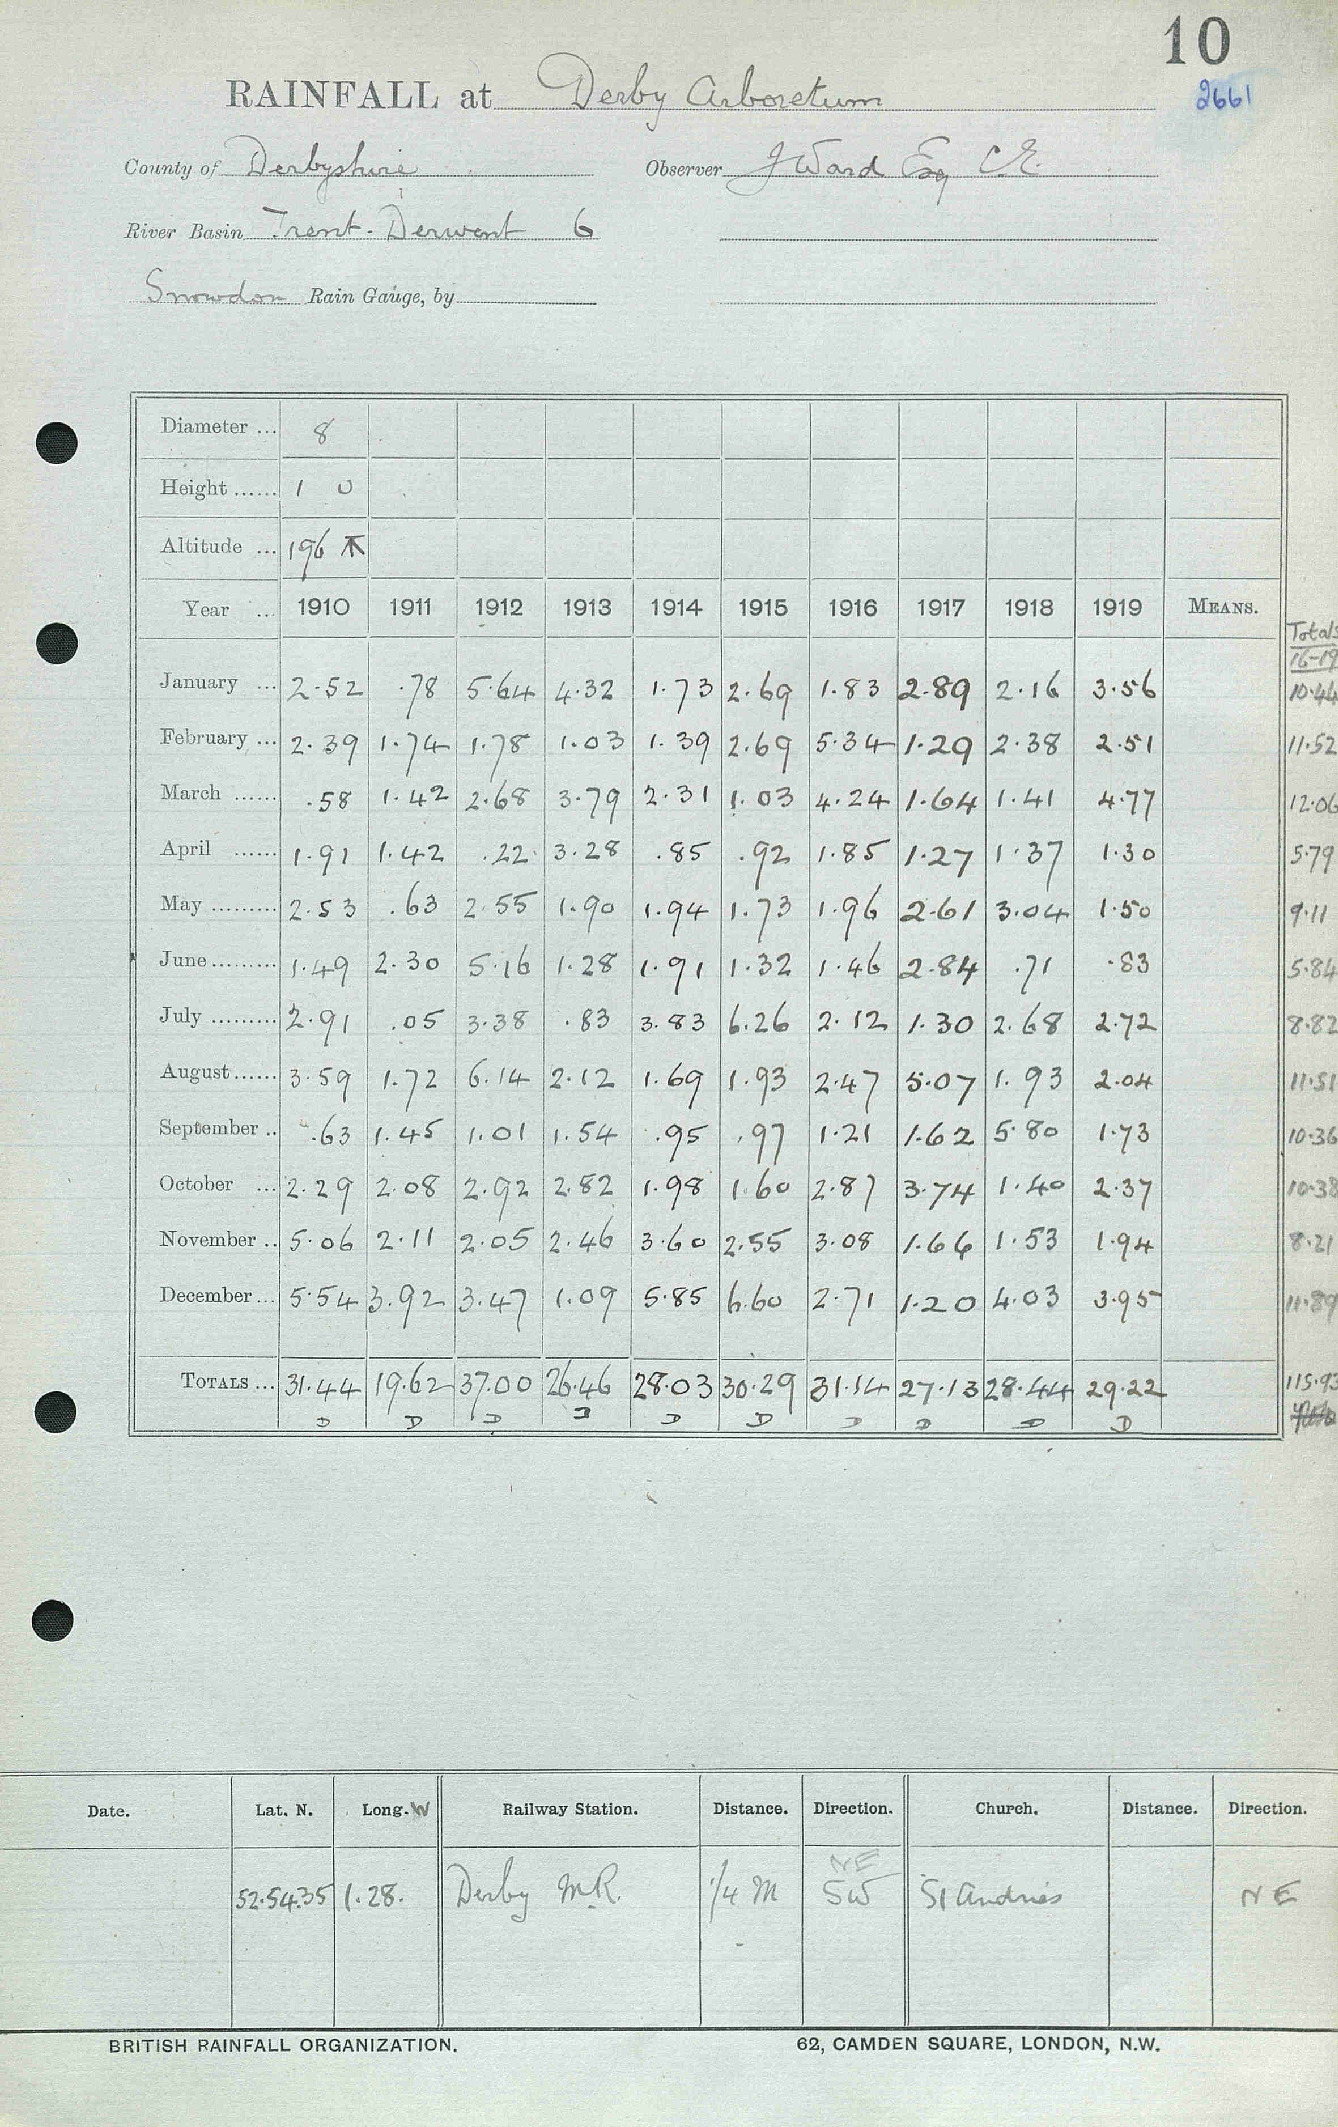 10
RAINFALL at Derby Arboretum
2661
County of Derbyshire Observer J Ward Esq C.E.
River Basin Trent-Derwent 6
Snowdon Rain Gauge, by
Diameter ... 8
Height ...... 1 0
Altitude ... 196
Year ... 1910 1911 1912 1913 1914 1915 1916 1917 1918 1919 MEANS.
Totals
16-19
January ... 2.52 .78 5.64 4.32 1.73 2.69 1.83 2.89 2.16 3.56 10.44
February ... 2.39 1.74 1.78 1.03 1.39 2.69 5.34 1.29 2.38 2.51 11.52
March ...... .58 1.42 2.68 3.79 2.31 1.03 4.24 1.64 1.41 4.77 12.06
April ...... 1.91 1.42 .22 3.28 .85 .92 1.85 1.27 1.37 1.30 5.79
May ......... 2.53 .63 2.55 1.90 1.94 1.73 1.96 2.61 3.04 1.50 9.11
June ......... 1.49 2.30 5.16 1.28 1.91 1.32 1.46 2.84 .71 .83 5.84
July ......... 2.91 .05 3.38 .83 3.83 6.26 2.12 1.30 2.68 2.72 8.82
August ...... 3.59 1.72 6.14 2.12 1.69 1.93 2.47 5.07 1.93 2.04 11.51
September .. .63 1.45 1.01 1.54 .95 .97 1.21 1.62 5.80 1.73 10.36
October ... 2.29 2.08 2.92 2.82 1.98 1.60 2.87 3.74 1.40 2.37 10.38
November .. 5.06 2.11 2.05 2.46 3.60 2.55 3.08 1.66 1.53 1.94 8.21
December ... 5.54 3.92 3.47 1.09 5.85 6.60 2.71 1.20 4.03 3.95 11.89
TOTALS ... 31.44 19.62 37.00 26.46 28.03 30.29 31.14 27.13 28.44 29.22 115.93
D D D D D D D D D D
Date. Lat. N. Long. W Railway Station. Distance. Direction. Church. Distance. Direction.
NE
52.54.35 1.28. Derby M.R. 1/4 M SW St Andrews NE
BRITISH RAINFALL ORGANIZATION. 62, CAMDEN SQUARE, LONDON, N.W.